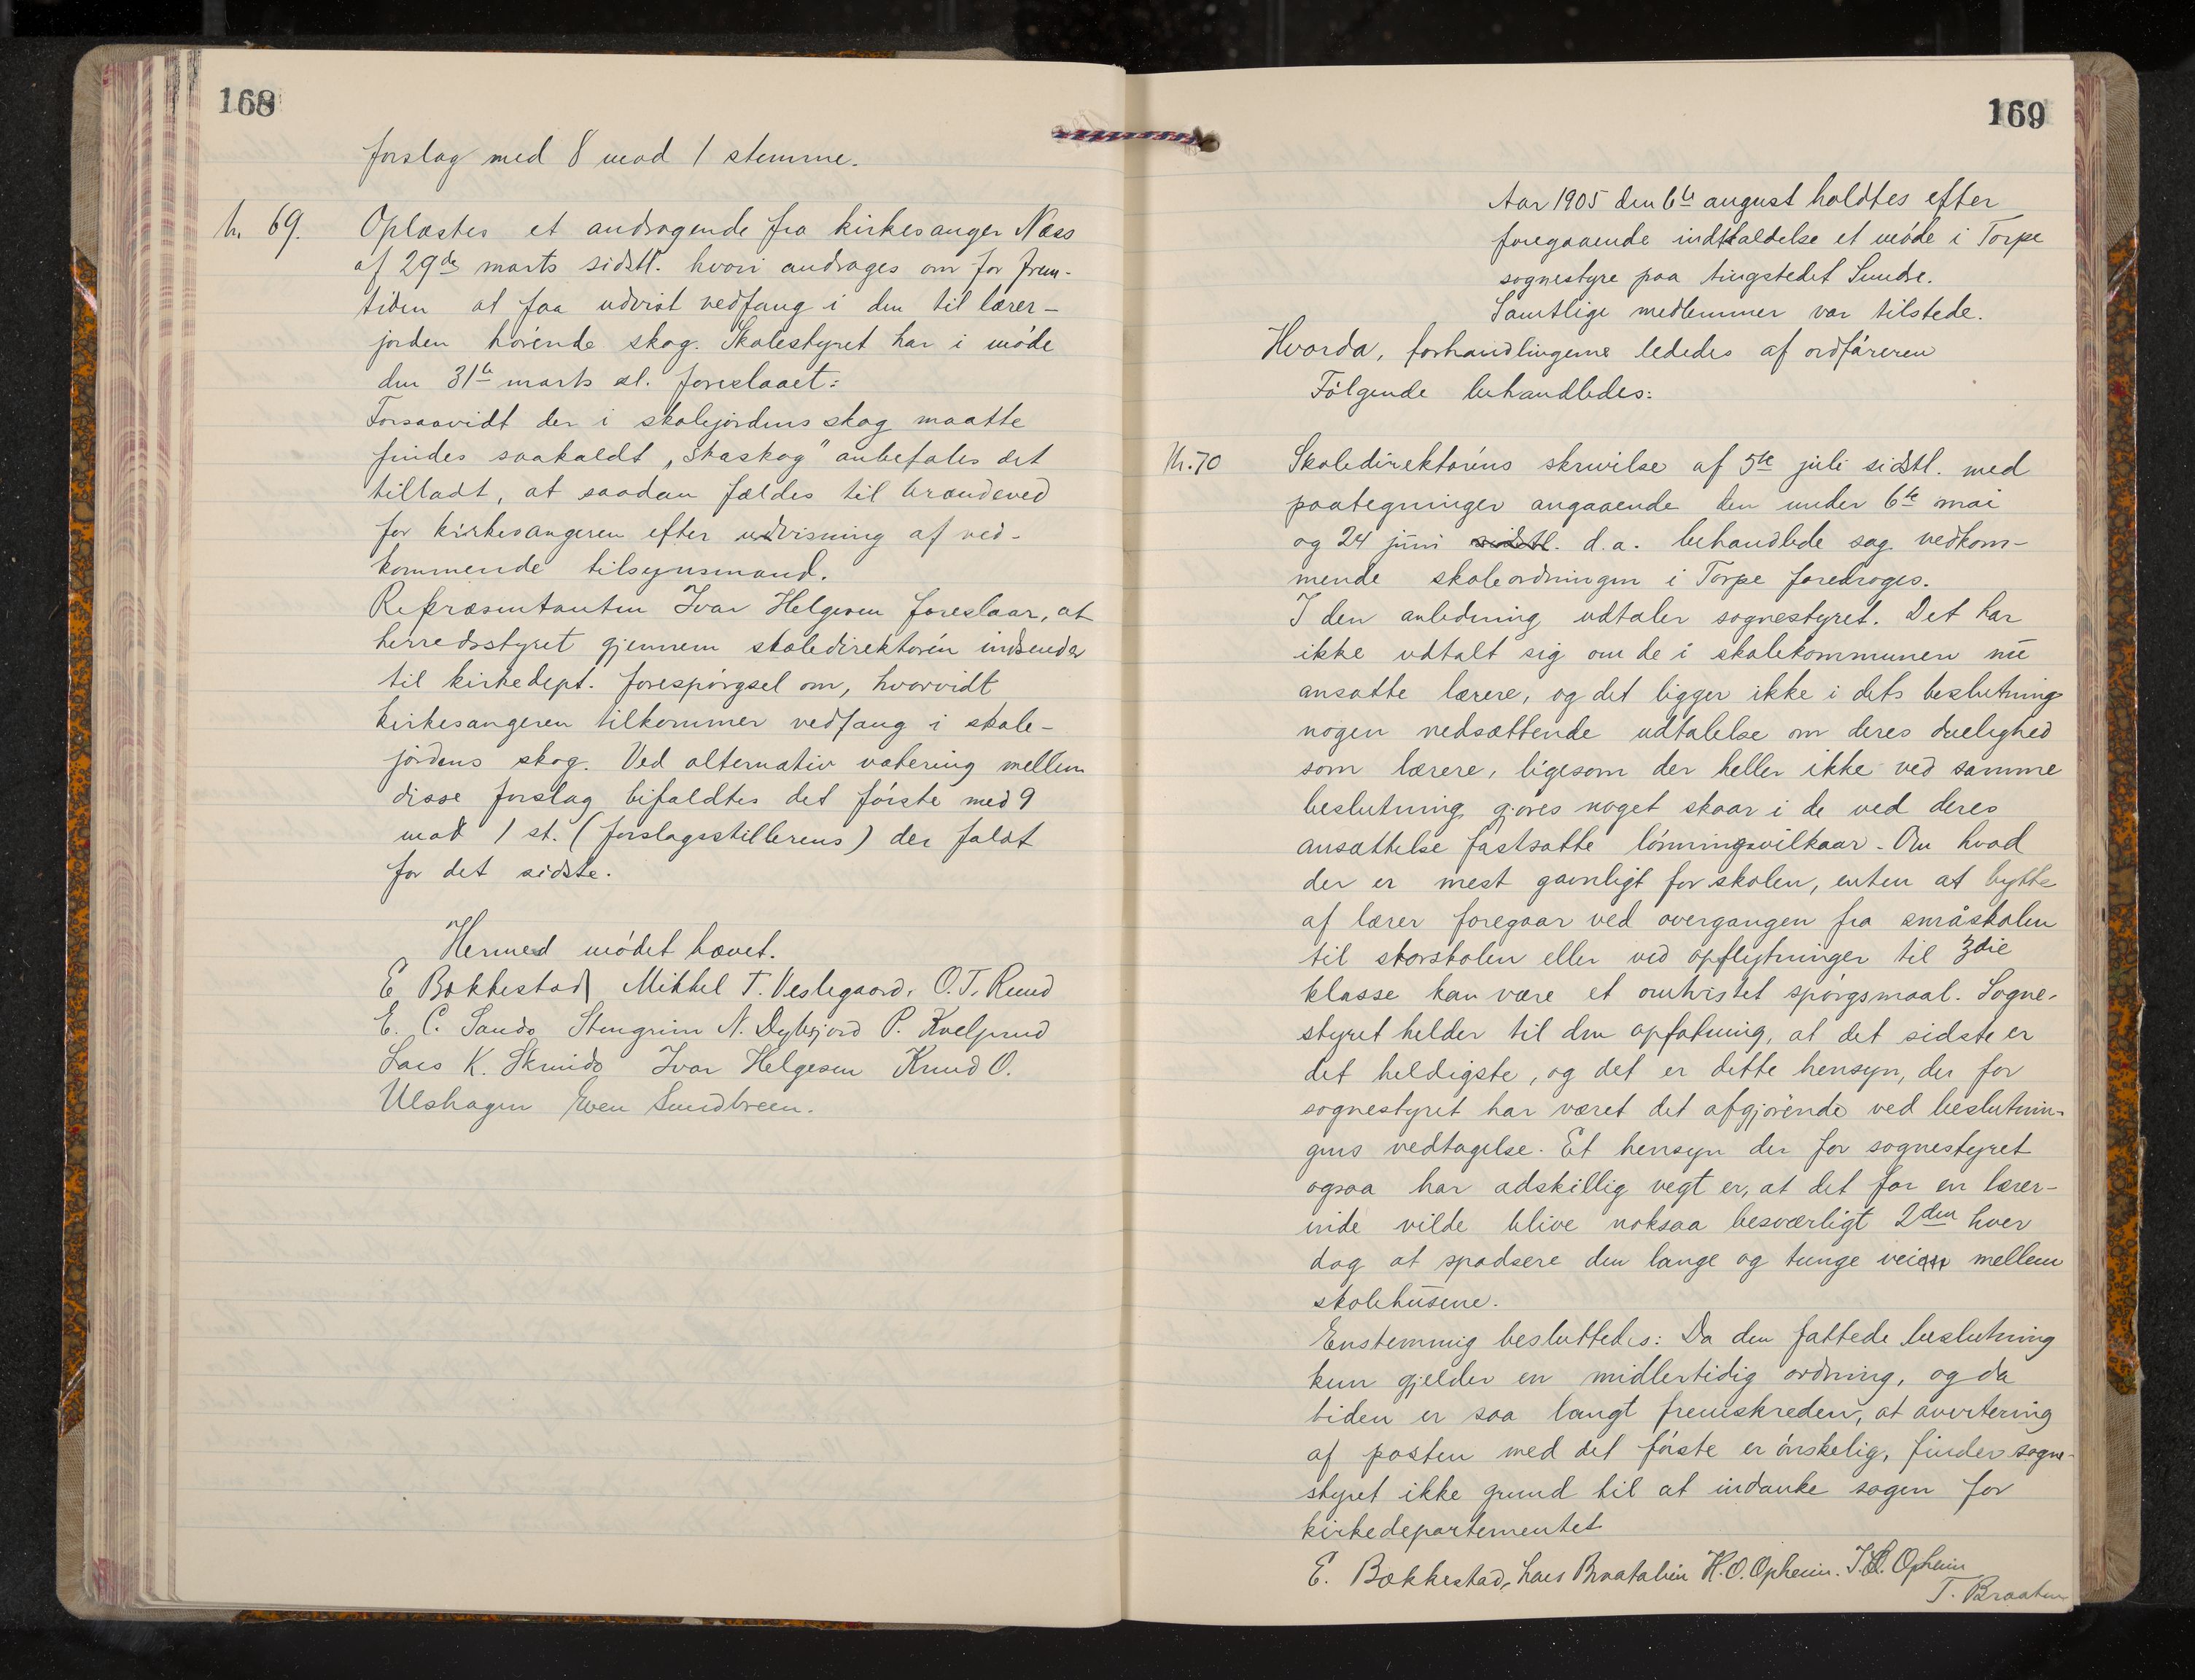 168
forslag med 8 mod 1 stemme.
N. 69. Oplæstes et andragende fra kirkesanger Næss
af 29de marts sidstl. hvori andrages om for frem-
tiden at faa udvist vedfang i den til lærer-
jorden hörende skog. Skolestyret har i möde
den 31te marts sl. foreslaaet:
Forsaavidt der i skolejordens skog maatte
findes saakaldt „skaskog" anbefales det
tilladt, at saadan fældes til brændeved
for kirkesangeren efter udvisning af ved-
kommende tilsynsmand.
Repræsentanten Ivar Helgesen foreslaar, at
herredsstyret gjennem skoledirektörén indsender
til kirkedept. forespörgsel om, hvorvidt
kirkesangeren tilkommer vedfang i skole-
jordens skog. Ved alternativ votering mellem
disse forslag bifaldtes det förste med 9
mod 1 st. (forslagsstillerens) der faldt
for det sidste.
Hermed mödet hævet.
E Bækkestad Mikkel T. Vestegaard. O. T. Ruud
E. C. Sando Stengrim N. Dybsjord P. Kvelprud
Lars K. Skrindo Ivar Helgesen Knud O.
Ulshagen Even Sundbreen.
169
Aar 1905 den 6te august holdtes efter
foregaaende indkaldelse et möde i Torpe
sognestyre paa tingstedet Sundre.
Samtlige medlemmer var tilstede.
Hvorda, forhandlingerne lededes af ordföreren
Fölgende behandledes:
N. 70 Skoledirektörens skrivelse af 5te juli sidstl. med
paategninger angaaende den under 6te mai
og 24 juni sidstl. d.a. behandlede sag vedkom-
mende skoleordningen i Torpe foredroges.
I den anledning udtaler sognestyret. Det har
ikke udtalt sig om de i skolekommunen nu
ansatte lærere, og det ligger ikke i dets beslutning
nogen nedsættende udtalelse om deres duelighed
som lærere, ligesom der heller ikke ved samme
beslutning gjöres noget skaar i de ved deres
ansættelse fastsatte lönningsvilkaar. Om hvad
der er mest gavnligt for skolen, enten at bytte
af lærer foregaar ved overgangen fra småskolen
til storskolen eller ved opflytninger til 3die
klasse kan være et omtvistet spörgsmaal. Sogne-
styret helder til den opfatning, at det sidste er
det heldigste, og det er dette hensyn, der for
sognestyret har været det afgjörende ved beslutnin-
gens vedtagelse. Et hensyn der for sognestyret
ogsaa har adskillig vegt er, at det for en lærer-
inde vilde blive noksaa besværligt 2den hver
dag at spadsere den lange og tunge vei mellem
skolehusene.
Enstemmig besluttedes: Da den fattede beslutning
kun gjelder en midlertidig ordning, og da
tiden er saa langt fremskreden, at avertering
af posten med det förste er önskelig, finder sogne-
styret ikke grund til at indanke sagen for
kirkedepartementet
E. Bækkestad, Lars Braatalien H. O. Opheim. T. H. Opheim
T. Braaten